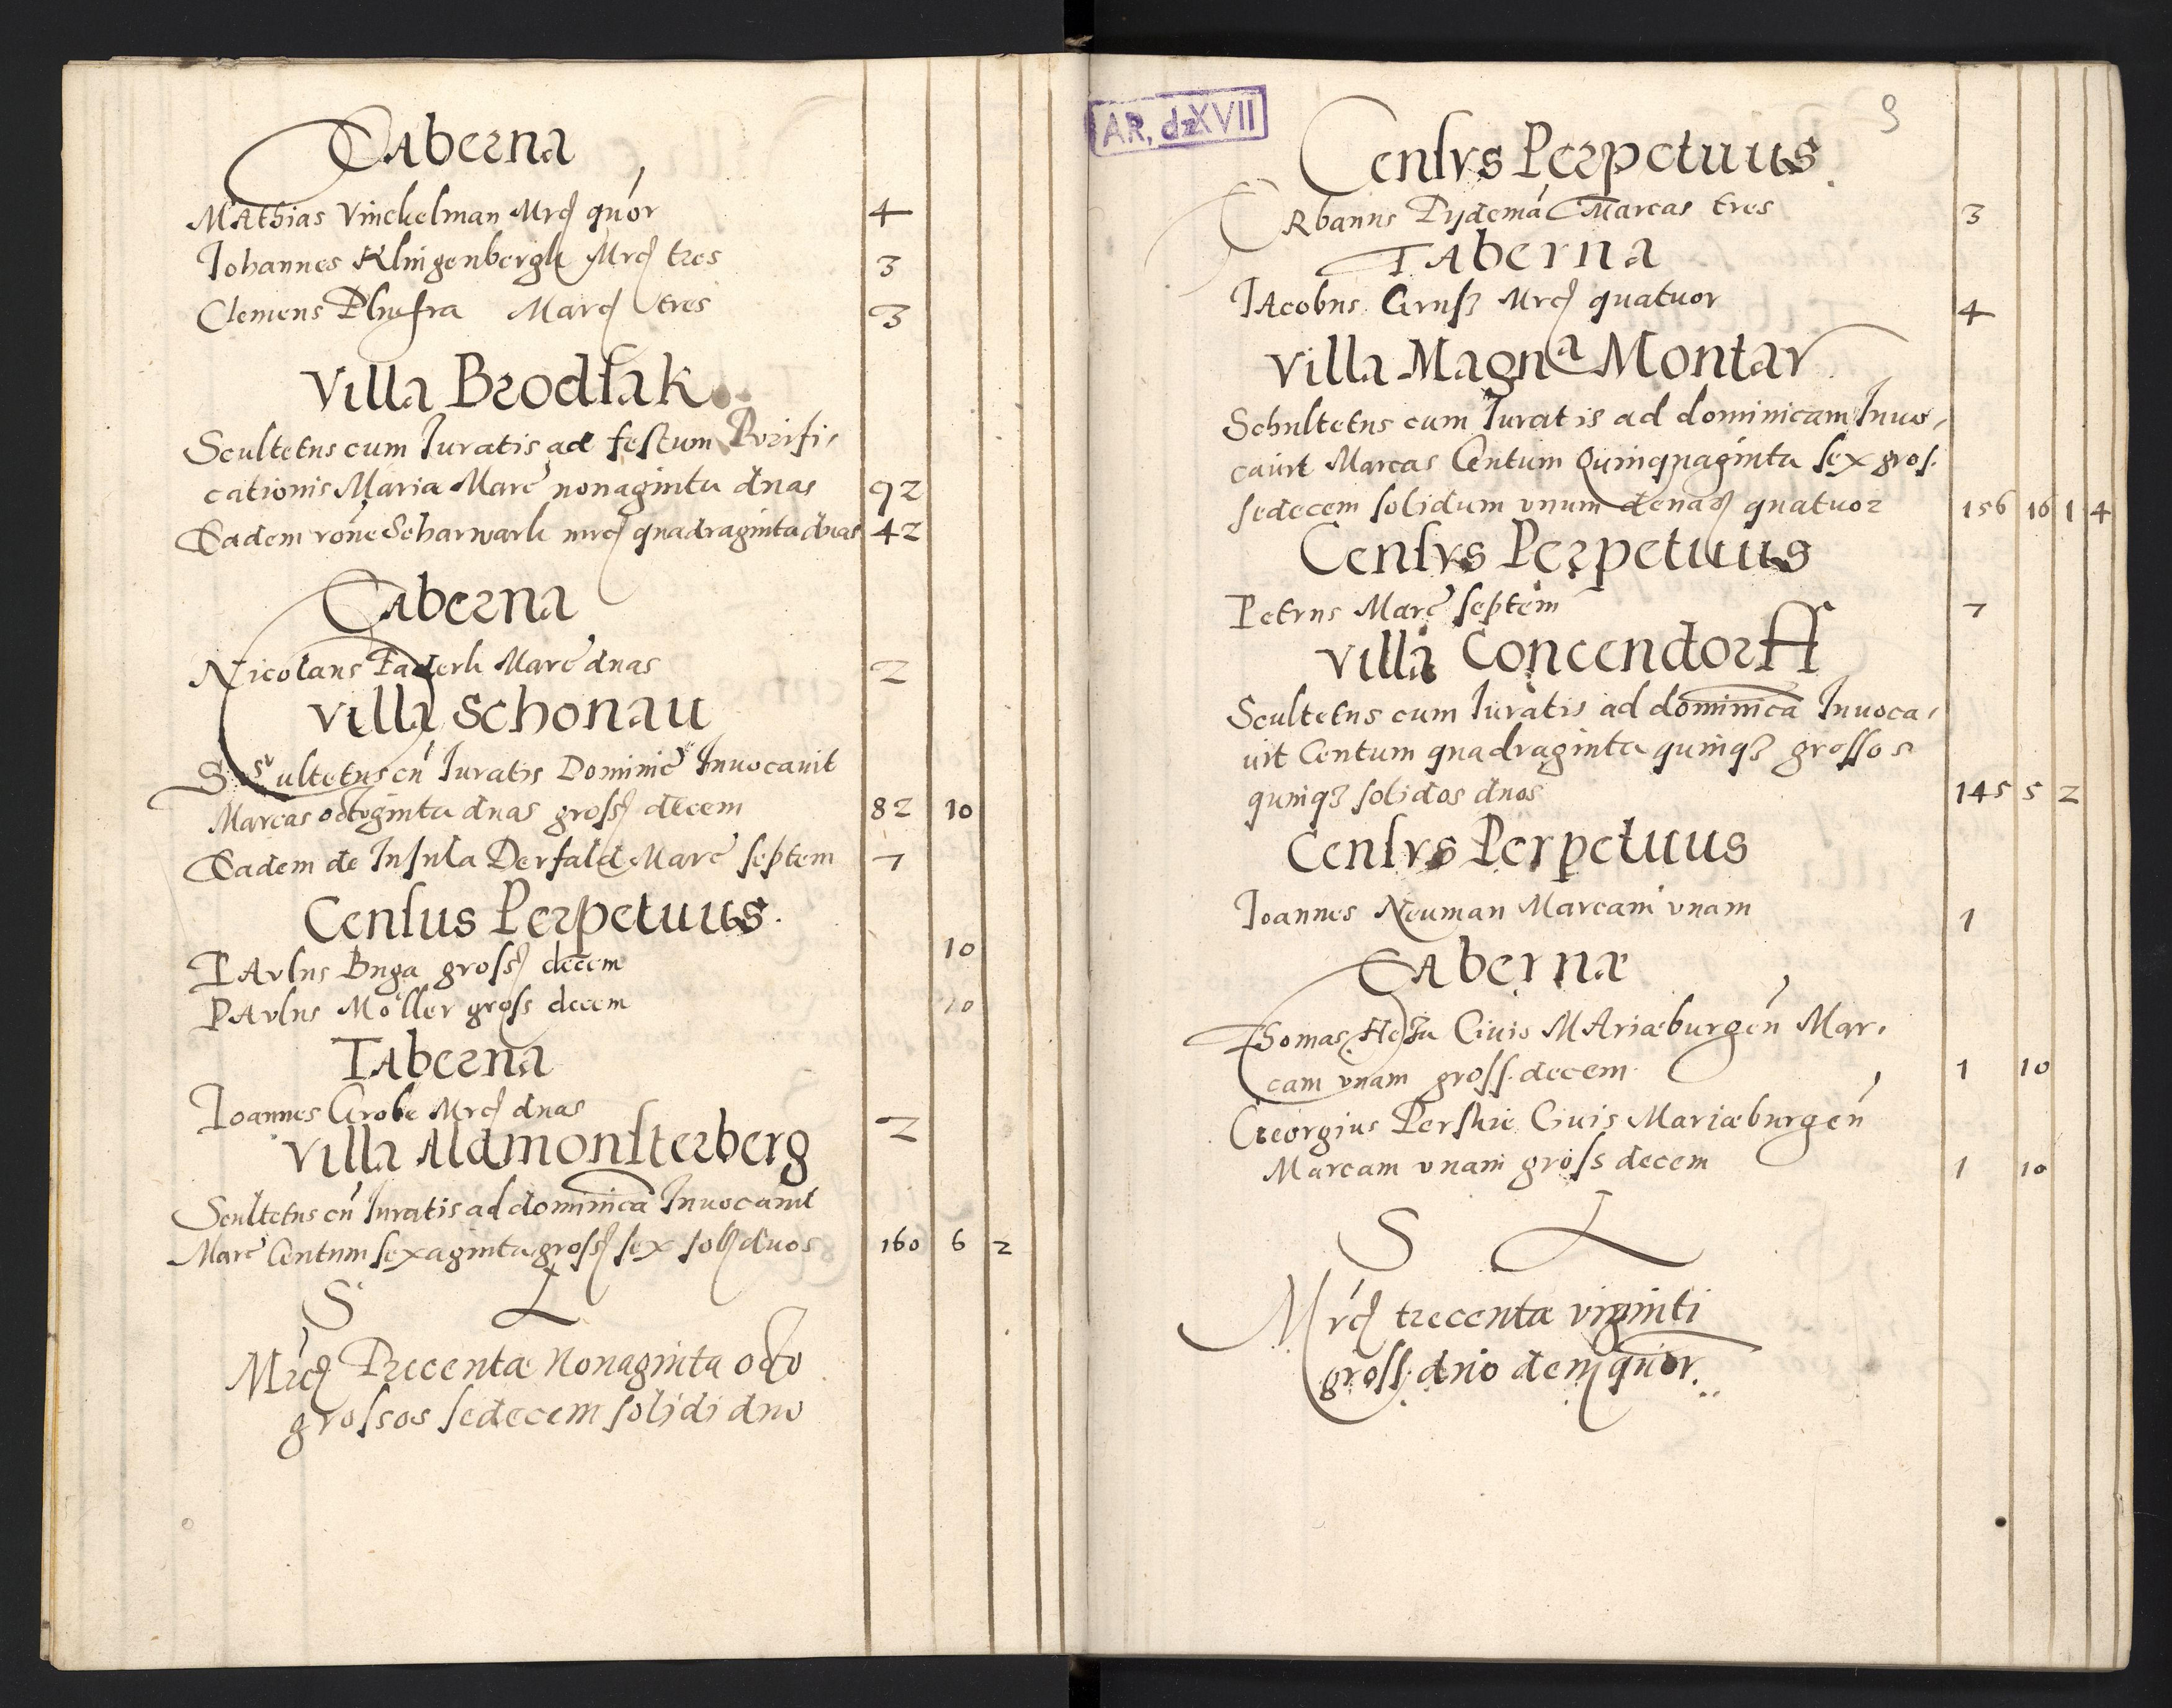 Taberna
Mathias Vinckelman Mrcꝭ quor 4
Iohannes Klingenbergk Mrcꝭ tres 3
Clemens Marcꝭ tres 3
Villa Brodsak
Scultetus cum Iuratis ad festum Purifi,
cationis Maria Marc nonaginta duas 92
Eadem rone Scharwark mrcꝭ quadraginta duas 42
Taberna
Nicolaus Marc duas 2
Villa Schonau
Scultetus cu Iuratis Dominic Inuocauit
Marcas octoginta duas grossꝭ decem 82 10
Eadem de Insula Derfald Marc septem 7
Census Perpetuus.
Paulus Buga grossꝭ decem 10
Paulus Möller gross decem 10
Taberna
Ioannes Grobe Mrcꝭ duas 2
Villa Aldmonsterberg
Scultetus cu Iuratis ad dominica Inuocauit
Marc Centum sexaginta grossꝭ sex solꝭ duos 160 6 2
S L
Mrcꝭ Trecenta Nonaginta octo
grossos sedecem solidi duo
AR, dz XVII
9
Censvs Perpetuus.
Vrbanus Tydema Marcas tres 3
Taberna
Iacobus Grusz Mrcꝭ quatuor 4
Villa Magna Montav
Schultetus cum Iuratis ad dominicam Inuo,
cauit Marcas Centum Quinquaginta sex gros.
sedecem solidum vnum denarꝭ quatuor 156 16 1 4
Censvs Perpetuus
Petrus Marc septem 7
Villa Concendorff
Scultetus cum Iuratis ad dominica Inuoca,
uit Centum quadraginta quinqꝫ grossos
quinqꝫ solidos duos 145 5 2
Censvs Perpetuus
Ioannes Neuman Marcam vnam 1
Tabernæ
Thomas Civis Mariæburgen Mar,
cam vnam gross. decem 1 10
Georgius Civis Mariæburgen
Marcam vnam gross decem 1 10
S L
Mrcꝭ trecenta viginti
gross. duo den quor.